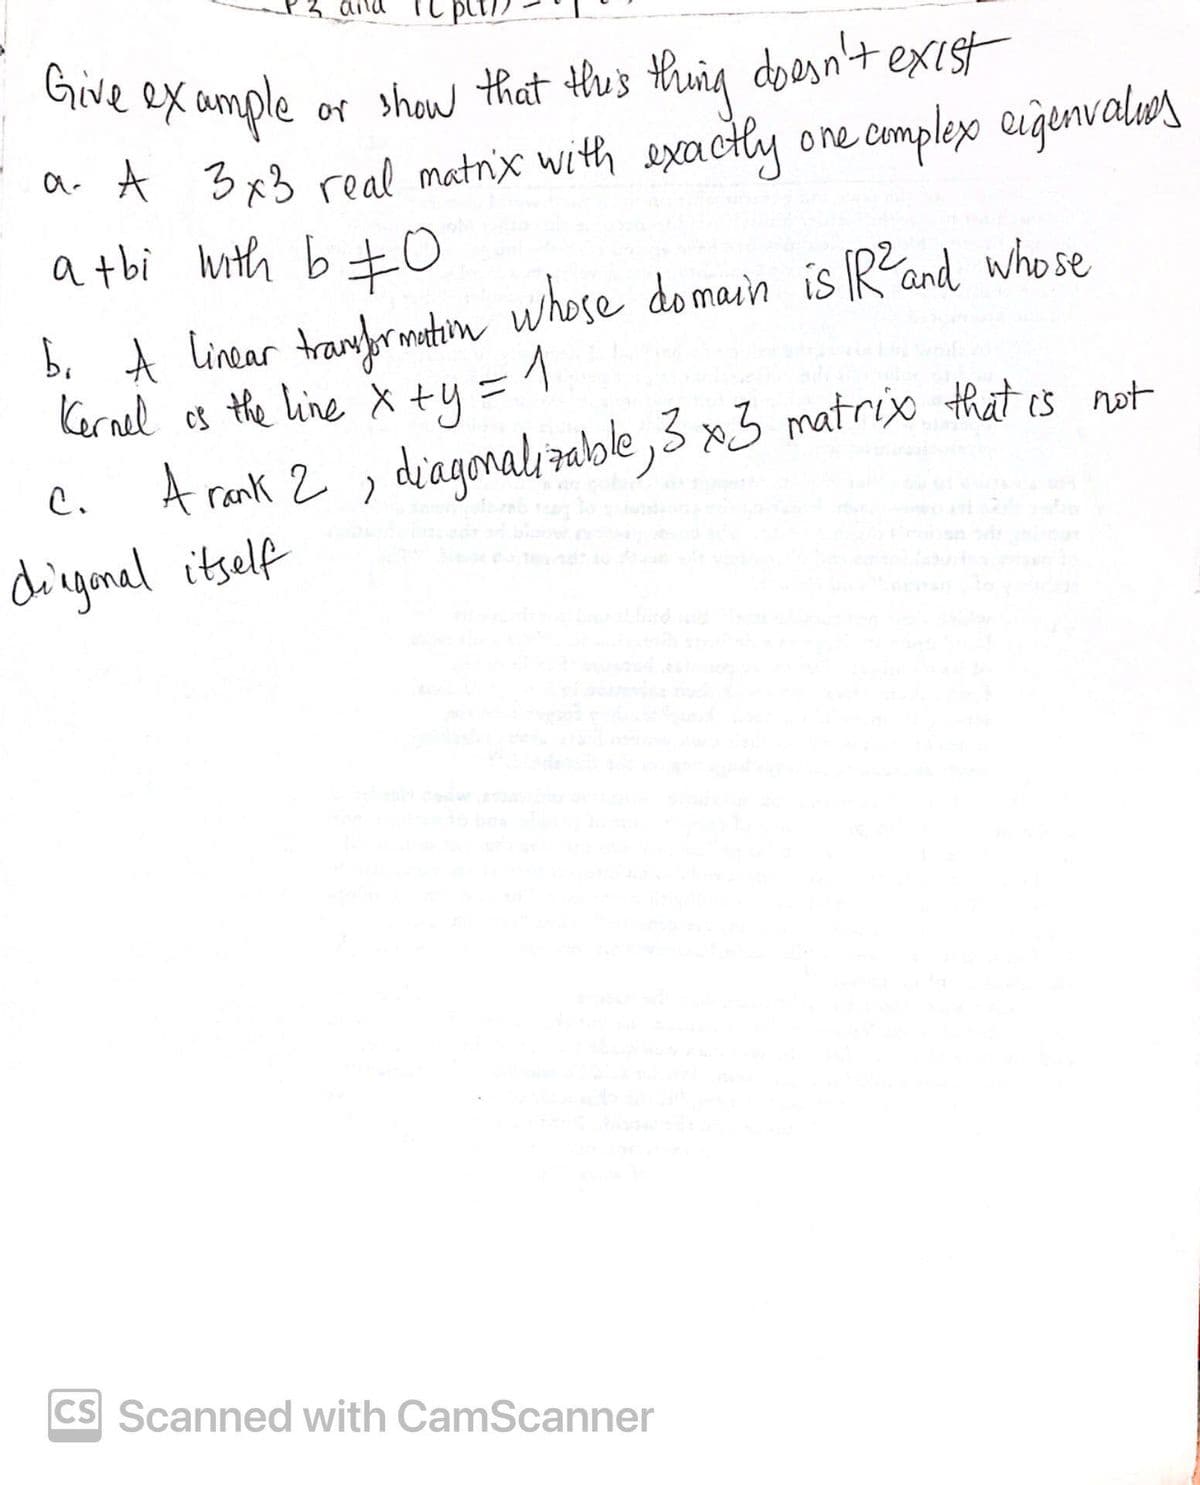 Give example or show that this thing doesn't exist
a. A 3x3 real matrix with exactly one complex eigenvalues
a+bi with b ≠ 0
b. A linear transformation whose domain is IR² and whose
Kernel is the line x+y=1
c. A rank 2, diagonalizable, 3x3 matrix that is not
diagonal itself
CS Scanned with CamScanner